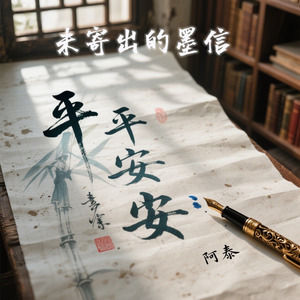 未寄出的墨信
平
平安安
阿泰